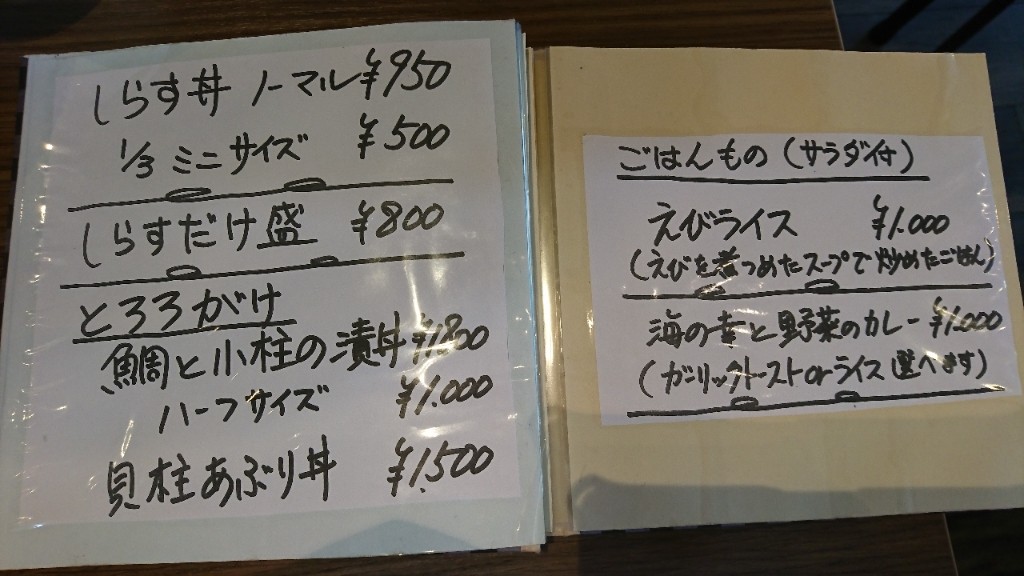 しらす丼 ノーマル ¥950
1/3 ミニサイズ ¥500
しらすだけ盛 ¥800
とろろがけ
鯛と小柱の漬丼 ¥1,800
ハーフサイズ ¥1,000
貝柱あぶり丼 ¥1,500
ごはんもの (サラダ付)
えびライス ¥1.000
(えびを煮つめたスープで炒めたごはん)
海の幸と野菜のカレー ¥1.000
(ガーリックトーストorライス選べます)